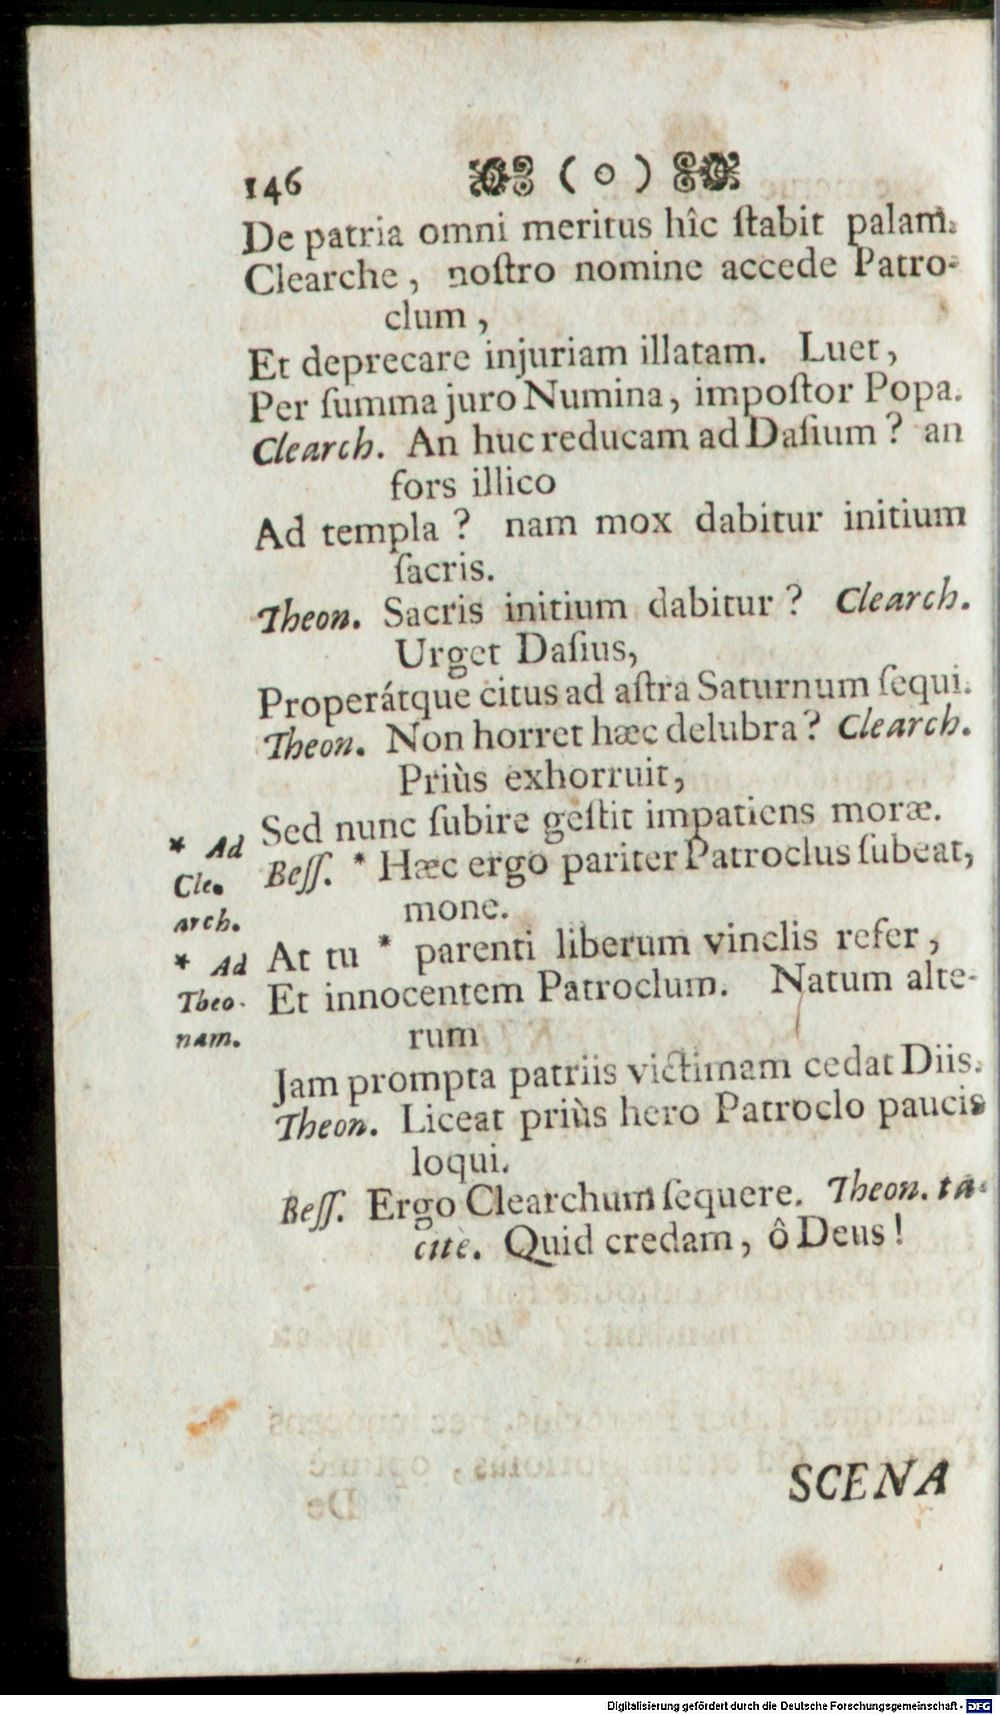 146 ( o )
De patria omni meritus hîc ſtabit palam.
Clearche, noſtro nomine accede Patro-
clum,
Et deprecare injuriam illatam. Luet,
Per ſumma juro Numina, impoſtor Popa.
Clearch. An huc reducam ad Daſium? an
fors illico
Ad templa? nam mox dabitur initium
ſacris.
Theon. Sacris initium dabitur? Clearch.
Urget Daſius,
Properátque citus ad aſtra Saturnum ſequi.
Theon. Non horret hæc delubra? Clearch.
Priùs exhorruit,
Sed nunc ſubire geſtit impatiens moræ.
* Ad
Cle-
arch.
Beſſ. * Hæc ergo pariter Patroclus ſubeat,
mone.
* Ad
Theo-
nam.
At tu * parenti liberum vinclis refer,
Et innocentem Patroclum. Natum alte-
rum
Jam prompta patriis victimam cedat Diis.
Theon. Liceat priùs hero Patroclo paucis
loqui.
Beſſ. Ergo Clearchum ſequere. Theon. ta-
citè. Quid credam, ô Deus!
SCENA
Digitalisierung gefördert durch die Deutsche Forschungsgemeinschaft - DFG